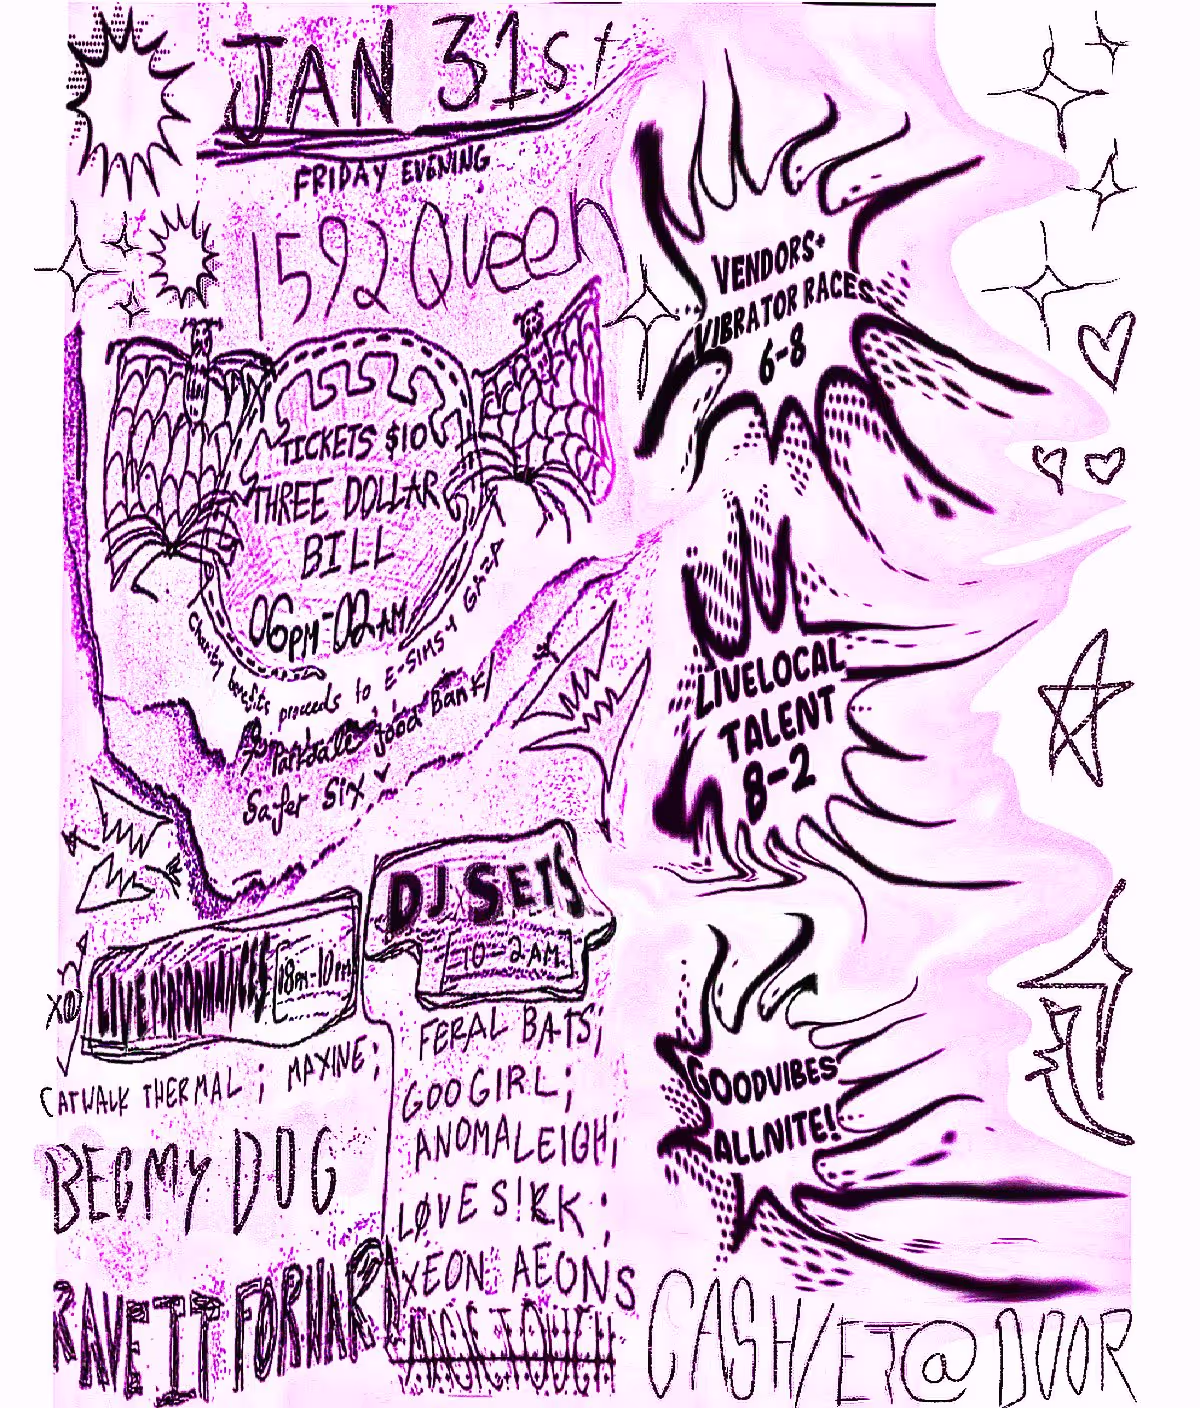 JAN 31st
FRIDAY EVENING
1592 Queen
TICKETS $10
THREE DOLLAR
BILL
06PM-02AM
Charity benefits proceeds to E-SIMS + GAZA
Parkdale food Bank/
Safer Six
VENDORS+
VIBRATOR RACES
6-8
LIVELOCAL
TALENT
8-2
GOODVIBES
ALLNITE!
LIVE PERFORMANCES 8PM-10PM
CATWALK THERMAL ; MAXINE;
BEG MY DOG
RAVE IT FORWARD
DJ SETS
10-2AM
FERAL BATS;
GOO GIRL;
ANOMALEIGH;
LØVE S!RK ;
XEON AEONS
MAGIC TOUCH
CASH/ET@DOOR